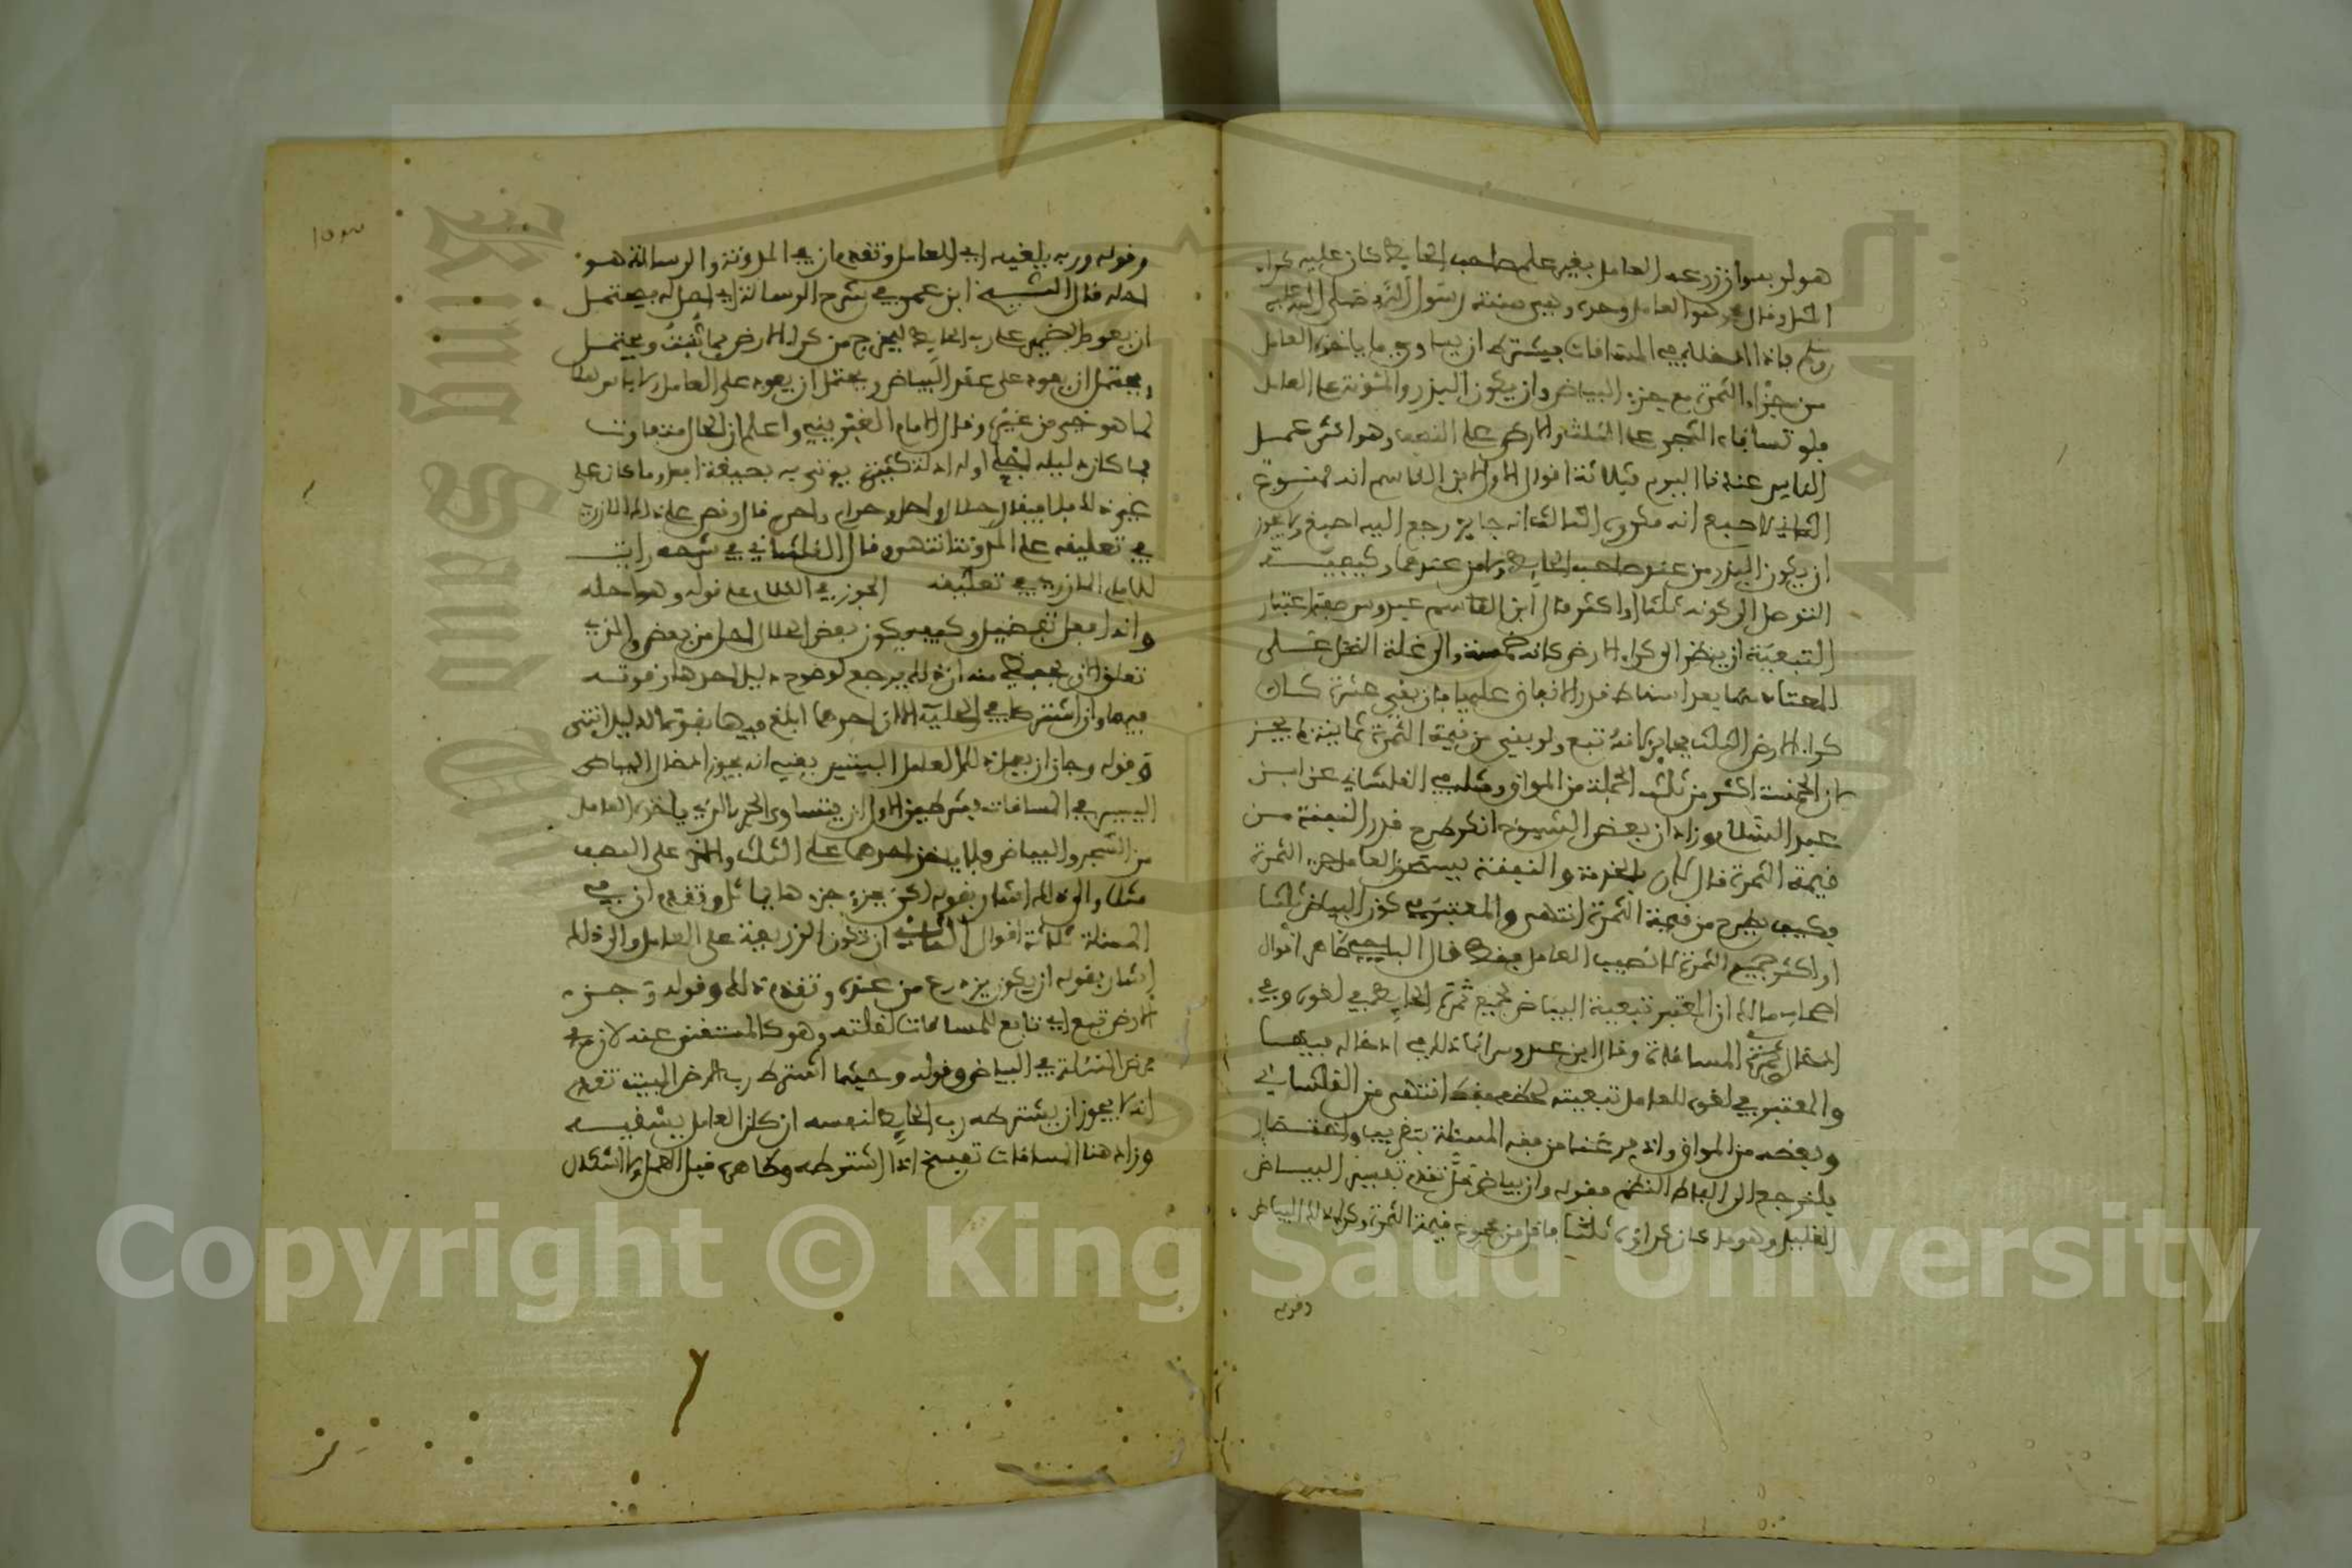 هو لو بسواز زرعه العامل بغير علم صاحب الحايط كان عليه كراء
المثل وقال هو للعامل وحده وهي سنة رسول الله صلى الله عليه
وسلم فاذا ادخله في المساقات فيشترط ان يساوي ما ياخذه العامل
من جزء الثمرة مع جزء البياض وان يكون البزر والمئونة على العامل
فلو تساقاء الشجر على الثلث والارض على النصف وهو اكثر عمل
الناس عندنا اليوم فثلاثة اقوال الاول لابن القاسم انه ممنوع
الثاني لاصبغ انه مكروه الثالث انه جايز رجع اليه اصبغ ولا يجوز
ان يكون البزر من عند صاحب الحايط ولا من عندهما وكيفيت
التوصل الى كونه ثلثا او اكثر قال ابن القاسم عبدوس صفة اعتبار
التبعية ان ينظر الى كراء الارض كانه خمسة والى غلة النخل على
المعتاد منها بعد اسقاط قدر الانفاق عليها فان بقي عشرة كان
كراء الارض الثلث فجايز لانه تبع ولو بقي من قيمة الثمرة ثمانية لم يجز
لان الخمسة اكثر من ثلث الجملة من المواق ومثله في القلشاني عن ابن
عبد السلام وزاد ان بعض الشيوخ انكر طرح قدر النفقة من
قيمة الثمرة قال لان الخدمة والنفقة يستحق العامل جزء الثمرة
فكيف يطرح من قيمة الثمرة انتهى والمعتبر في كون البياض ثلثا
او اكثر جميع الثمرة لا نصيب العامل فقط قال الباجي ظاهر اقوال
اصحاب مالك ان المعتبر تبعية البياض لجميع ثمرة الحايط في لغوه وفي
ادخال في المساقاة وقال ابن عبدوس انما ذلك في ادخاله فيها
والمعتبر في لغوه للعامل تبعيته لحظه فقط انتهى من القلشاني
وبعضه من المواق واذ فرغنا من فقه المسئلة بتقريب واختصار
فلنرجع الى الفاظ النظم فقوله وان بياض قل تقدم تفسير البياض
القليل وهو ما كان كراؤه ثلثا فاقل من مجموع قيمة الثمرة وكراء ذلك البياض
وقوله
١٥٣
وقوله وربه يلغيه اي للعامل وتقدم ان في المدونة والرسالة هو
احله قال الشيخ ابن عمر في شرح الرسالة اي احل له يحتمل
ان يعود الضمير على رب الحايط ليخرج من كراء الارض بما تنبت ويحتمل
ويحتمل ان يعود على عقد البياض ويحتمل ان يعود على العامل
لما هو خير من غيره وقال الامام الغبريني واعلم ان الحلال متفاوت
فما كان دليله اجلى او له ادلة كثيرة يوتى به بصيغة افعل وما كان على
غير ذلك فلا فيقال حلال واحل وحرام واحرم قال ونص على ذلك المازري
في تعليقه على المدونة انتهى وقال القلشاني في شرحه رايت
للامام المازري في تعليقه الجوزقي الكلام على قوله وهو احله
واحل افعل تفضيل وكيف يكون بعض الحلال احل من بعض والذي
تعلق الان بحفظي منه ان ذلك يرجع لوضوح دليل احدهما وقوته
فيهما وان اشتركا في الحلية الا ان احدهما ابلغ فيها بقوة الدليل انتهى
وقوله وجاز ان يعمل ذلك العامل البيتين يعني انه يجوز ادخال البياض
اليسير في المساقات بشرطين الاول ان يتساوى الجزء الذي ياخذه العامل
من الشجر والبياض فلا ياخذ احدهما على الثلث والاخر على النصف
مثلا والى ذلك اشار بقوله لكن بجزء جزءها يماثل وتقدم ان في
المسئلة ثلاثة اقوال الثاني ان تكون الزريعة على العامل والى ذلك
اشار بقوله ان يكون يزدرع من عنده وتقدم ذلك وقوله وجزء
الارض تبع اي تابع للمساقات لقلته وهو كالمستغنى عنه لان
فرض المسئلة في البياض وقوله وحيثما اشترط رب الارض البيت تقدم
انه لا يجوز ان يشترطه رب الحايط لنفسه ان كان العامل يسقيه
وزاد هنا المساقات تفسخ اذا اشترطه وظاهره قبل العمل ولا اشكال
Copyright © King Saud University
King Saud University